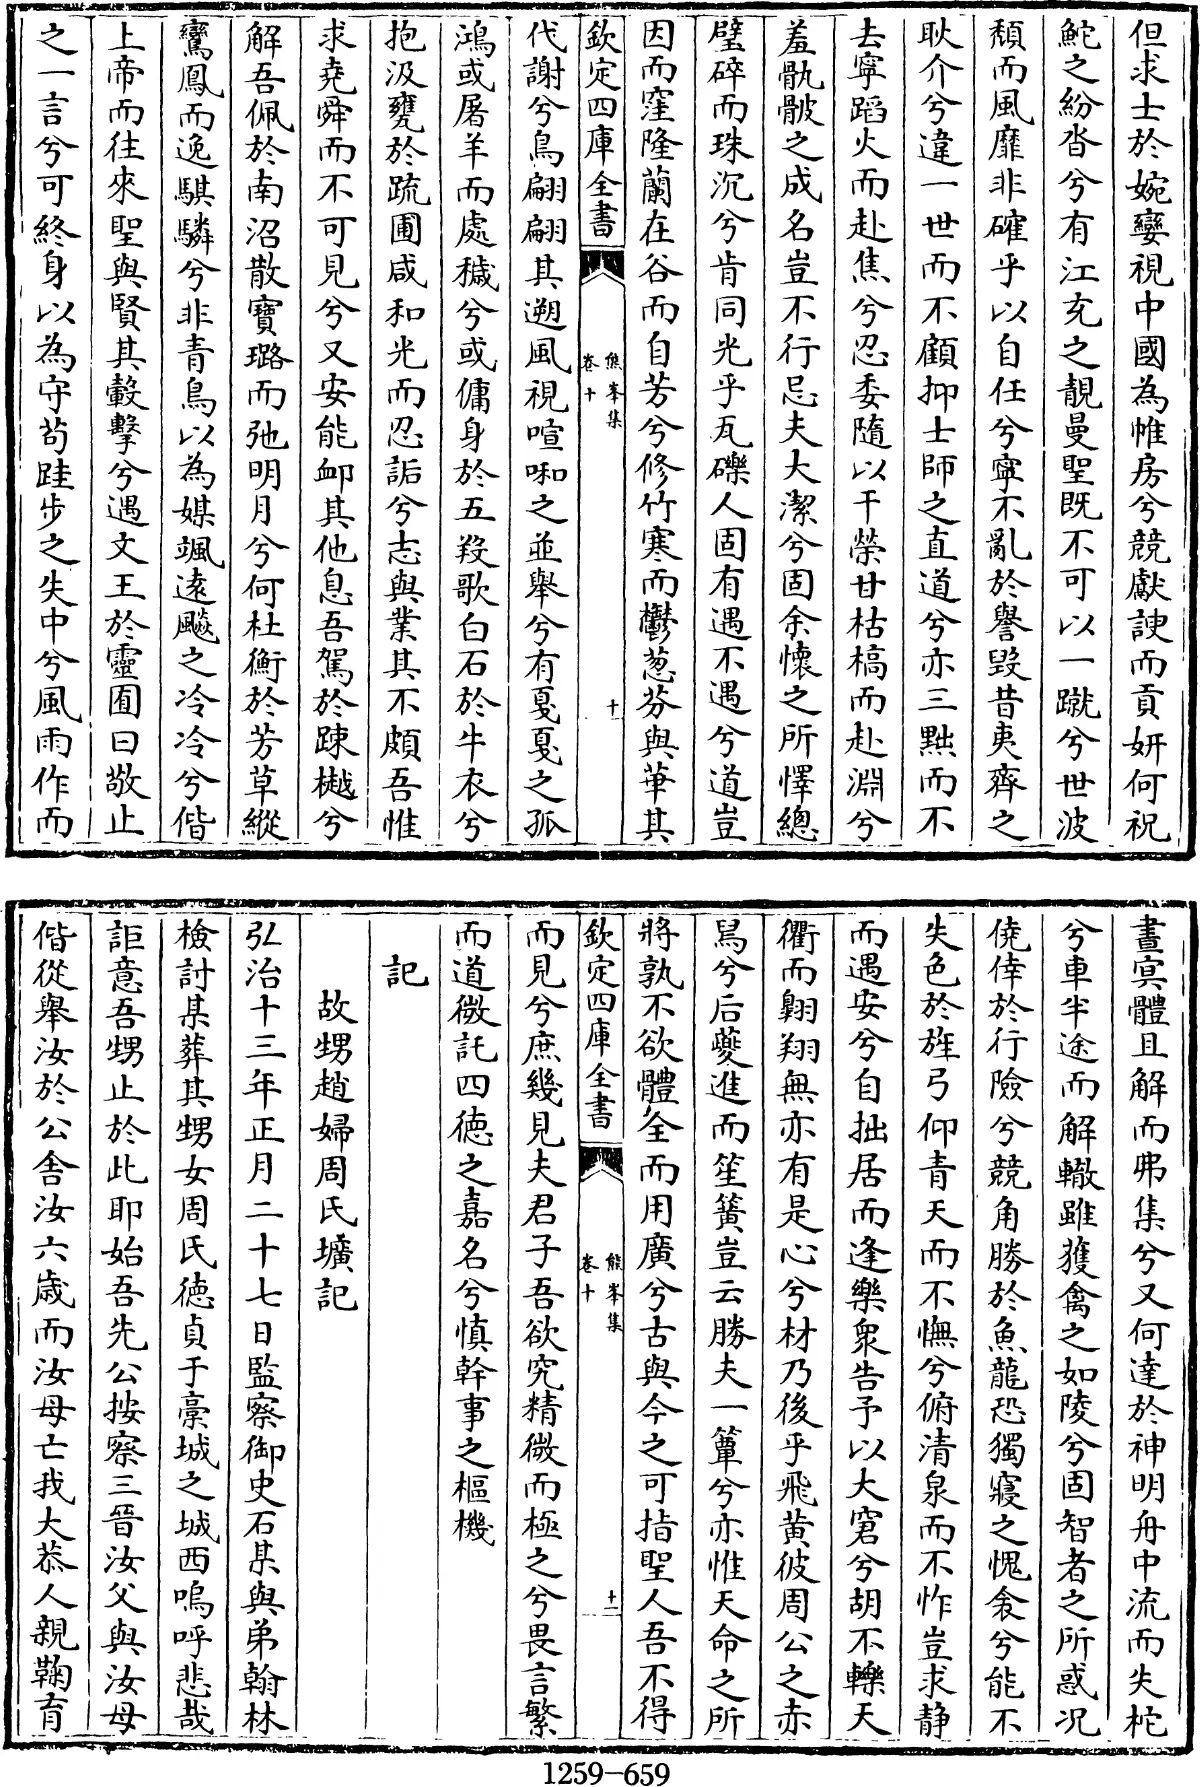 但求士於婉孌視中國為帷房兮競獻諛而貢妍何祝
鮀之紛沓兮有江充之靚曼聖既不可以一蹴兮世波
頽而風靡非確乎以自任兮寧不亂於譽毀昔夷齊之
耿介兮違一世而不顧抑士師之直道兮亦三黜而不
去寧蹈火而赴焦兮忍委隨以干榮甘枯槁而赴淵兮
羞骫骳之成名豈不行忌夫大潔兮固余懷之所懌總
璧碎而珠沉兮肯同光乎瓦礫人固有遇不遇兮道豈
因而窪隆蘭在谷而自芳兮修竹寒而鬱葱芬與華其
欽定四庫全書
熊峯集
卷十
十
代謝兮鳥翩翩其遡風視喧啾之並舉兮有戛戛之孤
鴻或屠羊而處穢兮或傭身於五羖歌白石於牛衣兮
抱汲甕於疏圃咸和光而忍詬兮志與業其不頗吾惟
求堯舜而不可見兮又安能卹其他息吾駕於踈樾兮
解吾佩於南沼散寶璐而弛明月兮何杜衡於芳草縱
鸞鳳而逸騏驎兮非青鳥以為媒颯遠飇之冷冷兮偕
上帝而往來聖與賢其轂擊兮遇文王於靈囿曰敬止
之一言兮可終身以為守苟跬步之失中兮風雨作而
晝冥體且解而弗集兮又何達於神明舟中流而失柁
兮車半途而解轍雖獲禽之如陵兮固智者之所惑况
僥倖於行險兮競角勝於魚龍恐獨寢之愧衾兮能不
失色於旌弓仰青天而不憮兮俯清泉而不怍豈求静
而遇安兮自拙居而逢樂衆告予以大窘兮胡不轢天
衢而翺翔無亦有是心兮材乃後乎飛黄彼周公之赤
舄兮后夔進而笙簧豈云勝夫一簞兮亦惟天命之所
將孰不欲體全而用廣兮古與今之可指聖人吾不得
欽定四庫全書
熊峯集
卷十
十一
而見兮庶幾見夫君子吾欲究精微而極之兮畏言繁
而道微託四徳之嘉名兮慎幹事之樞機
記
故甥趙婦周氏壙記
弘治十三年正月二十七日監察御史石某與弟翰林
檢討某葬其甥女周氏徳貞于藁城之城西嗚呼悲哉
詎意吾甥止於此耶始吾先公按察三晉汝父與汝母
偕從舉汝於公舍汝六歳而汝母亡我大恭人親鞠育
1259-659